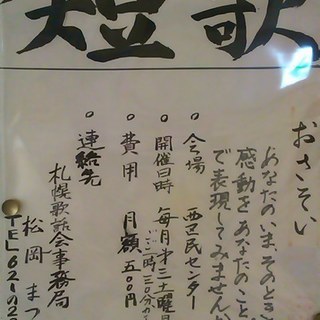 短歌
おさそい
あなたのいま、そのとき
感動をあなたのこと
で表現してみませんか
○ 会場 西区民センター
○ 開催日時 毎月第三土曜日
二時三〇分から
○ 費用 月額五〇〇円
○ 連絡先
札幌歌話会事務局
松岡まつ
TEL621-02